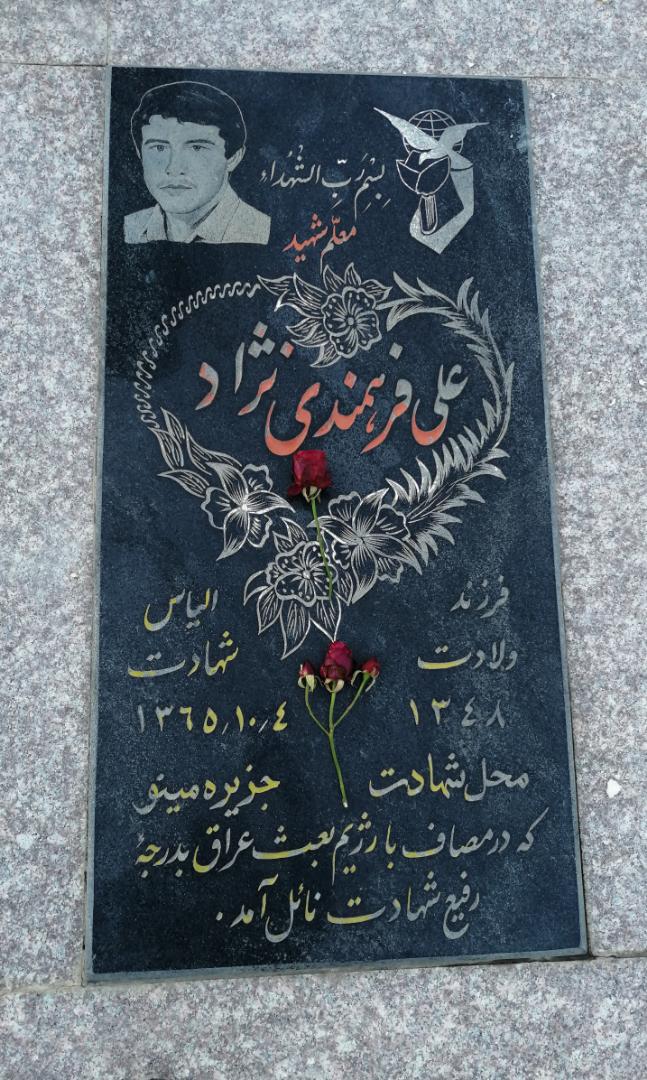 بِسْمِ رَبِّ الشُّهَداءِ
معلّم شهید
علی فرهمندی نژاد
فرزند الیاس
ولادت شهادت
۱۳۴۸ ۱۳۶۵/۱۰/۴
محل شهادت جزیره مینو
که در مصاف با رژیم بعث عراق بدرجهٔ
رفیع شهادت نائل آمد.